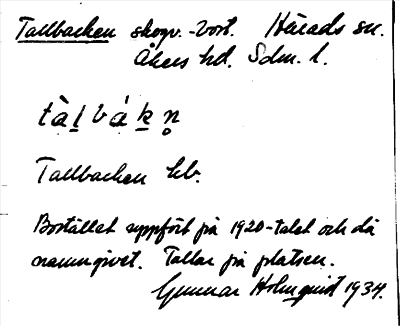 Tallbacken skogv.-bost. Härads sn.
Åkers hd. Sdm. l.
tàl̲bák̲n̥
Tallbacken kb.
Bostället uppfört på 1920-talet och då
namngivet. Tallar på platsen.
Gunnar Holmquist 1934.